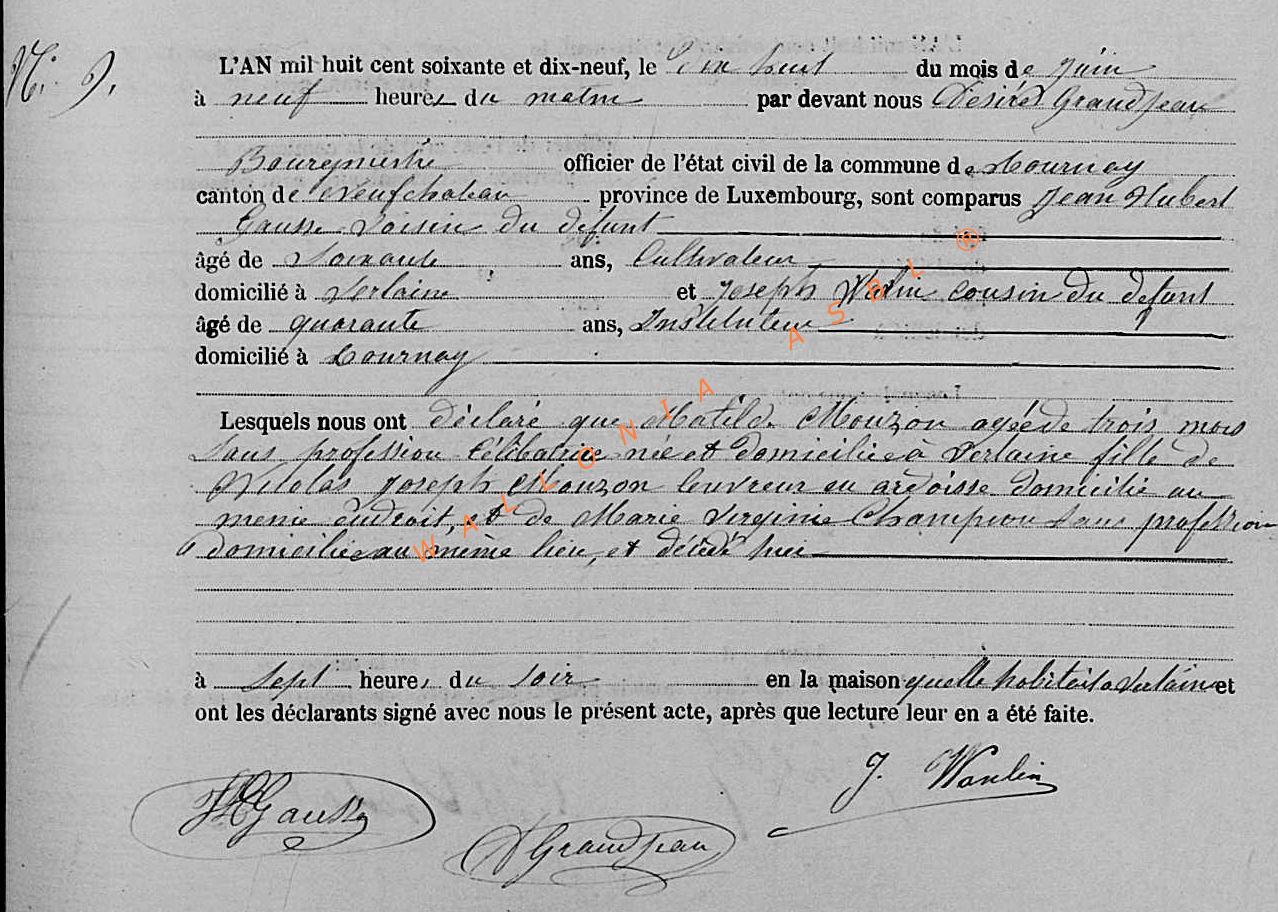 N: 9.
L'AN mil huit cent soixante et dix-neuf, le Dix huit du mois de Juin
à neuf heures du matin par devant nous Désiré Grandjean
Bourgmestre officier de l'état civil de la commune de Tournay
canton de Neufchateau province de Luxembourg, sont comparus Jean Hubert
Gausse Voisin du défunt
âgé de Soixante ans, Cultivateur
domicilié à Verlaine et Joseph Wanlin cousin du defunt
âgé de quarante ans, Instituteur
domicilié à Tournay
Lesquels nous ont déclaré que Matilde Mouzon agée de trois mois
Sans profession Célibataire née et domiciliée à Verlaine fille de
Nicolas Joseph Mouzon Couvreur en ardoisse domicilié au
meme endroit, et de Marie Virginie Champion sans profession
domiciliée au même lieu, et décédé hier
à Sept heures du soir en la maison quelle habitait a Verlaine et
ont les déclarants signé avec nous le présent acte, après que lecture leur en a été faite.
J. Wanlin
JHGausse
DGrandjean
WALLONIA ASBL ®